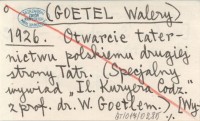 (GOETEL Walery)
1926. Otwarcie tater-
nictwu polskiemu drugiej
strony Tatr. (Specjalny
wywiad „Il. Kuryera Codz."
z prof. dr. W. Goetlem.) [Wy-